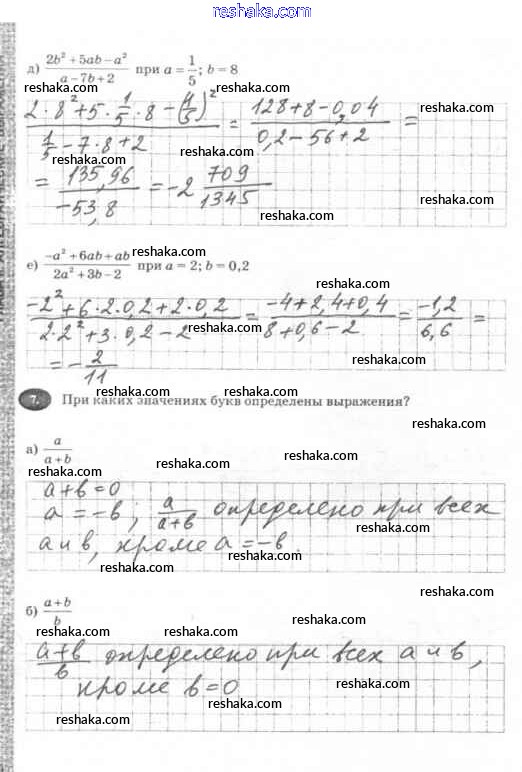 reshaka.com
д) (2b² + 5ab − a²)/(a − 7b + 2) при a = 1/5; b = 8
reshaka.com reshaka.com
(2·8² + 5·1/5·8 − (1/5)²)/(1/5 − 7·8 + 2) = (128 + 8 − 0,04)/(0,2 − 56 + 2) =
reshaka.com reshaka.com
reshaka.com
= 135,96/−53,8 = −2 709/1345
reshaka.com
reshaka.com
е) (−a² + 6ab + ab)/(2a² + 3b − 2) при a = 2; b = 0,2
reshaka.com
(−2² + 6·2·0,2 + 2·0,2)/(2·2² + 3·0,2 − 2) = (−4 + 2,4 + 0,4)/(8 + 0,6 − 2) = −1,2/6,6 =
reshaka.com reshaka.com
= −2/11
reshaka.com reshaka.com
7. При каких значениях букв определены выражения?
reshaka.com
а) a/(a + b)
reshaka.com reshaka.com
reshaka.com
a + b = 0
a = −b; a/(a+b) определено при всех
reshaka.com
a и b, кроме a = −b.
reshaka.com reshaka.com
reshaka.com
б) (a + b)/b
reshaka.com reshaka.com reshaka.com
(a+b)/b определено при всех a и b,
кроме b = 0
reshaka.com
reshaka.com reshaka.com